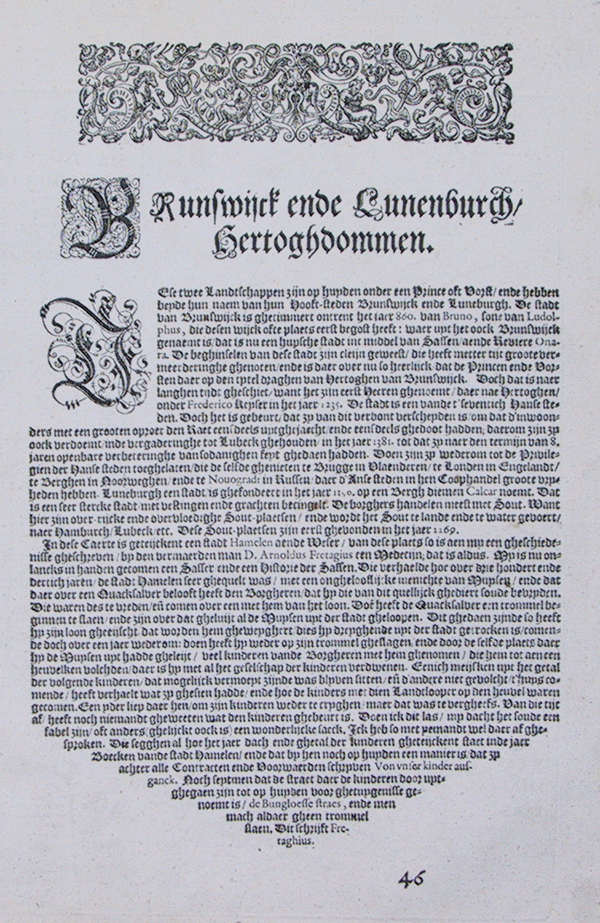 BRunswijck ende Lunenburch/
Hertoghdommen.
DEse twee Landtschappen zijn op huyden onder een Prince oft Vorst/ ende hebben
beyde hun naem van hun Hooft-steden Brunswijck ende Luneburgh. De stadt
van Brunswijck is ghetimmert ontrent het jaer 860. van Bruno, sone van Ludol-
phus, die desen wijck ofte plaets eerst begost heeft: waer upt het oock Brunswijck
genaemt is/ dat is nu een hupsche stadt int middel van Sassen/ aende Reviere Ona-
ra. De beghinselen van dese stadt zijn cleijn geweest/ die heeft metter tijt groote ver-
meerderinghe ghenoten/ ende is daer over nu so heerlijck dat de Princen ende Vor-
sten daer op den tytel draghen van Hertoghen van Brunswijck. Doch dat is naer
langhen tijdt gheschiet/ want het zijn eerst Heeren ghenoemt/ daer nae Hertoghen/
onder Frederico Keyser in het jaer 1235. De stadt is een vande t'seventich Hanse ste-
den. Doch het is gebeurt, dat zy van dit verbont verscheyden is/ om dat d'inwoon-
ders met een grooten oproer den Raet eensdeels uytghejaecht/ ende eensdeels ghedoot hadden; daerom zijn zy
oock verdoemt inde vergaderinghe tot Lubeck ghehouden/ in het jaer 1381. tot dat zy naer den termijn van 8.
jaren openbare verbeteringhe van sodanighen feyt ghedaen hadden. Doen zijn zy wederom tot de Privile-
gien der Hanse steden toeghelaten/ die de selfde ghenieten te Brugge in Vlaenderen/ te Londen in Engelandt/
te Berghen in Noorweghen/ ende te Nouogradt in Russen/ daer d'Anse steden in hen Coophandel groote vry-
heden hebben. Luneburgh een stadt is ghefondeert in het jaer op een Bergh diemen Calcar noemt. Dat
is een seer stercke stadt met vestingen ende grachten becingelt. De borghers handelen meest met Sout. Want
hier zijn over-rijcke ende overvloedighe Sout-plaetsen/ ende wordt het Sout te lande ende te water gevoert/
naer Hamburch/ Lubeck/ etc. Dese Sout-plaetsen zijn eerst ghevonden in het jaer 1269.
In dese Caerte is geteijckent een stadt Hamelen aende Weser/ van dese plaets so is aen my een gheschiede-
nisse gheschreven/ by den vermaerden man D. Arnoldus Fretagius een Medecijn; dat is aldus. My is nu on-
lancks in handen gecomen een Sasser ende een Historie der Sassen. Die verhaelde hoe over drie hondert ende
dertich jaren/ de stadt Hamelen seer ghequelt was/ met een ongheloofijcke menichte van Muysen/ ende dat
daer over een Quacksalver belooft heeft den Borgheren/ dat hy die van dit quellijck ghediert soude bevryden.
Die waren des te vreden/ eñ comen over een met hem van het loon. Dos heeft de Quacksalver een trommel be-
ginnen te slaen/ ende zijn over dat gheluyt al de Muysen uyt der stadt gheloopen. Dit ghedaen zijnde so heeft
hy zijn loon gheeijscht, dat worden hem gheweyghert dies hy dreyghende uyt der stadt getrocken is/ comen-
de doch over een jaer wederom: doen heeft hy weder op zijn trommel gheslagen, ende door de selfde plaets daer
hy de Muysen uyt hadde gheleyt/ veel kinderen vande Borgheren met hem ghenomen/ die hem tot aen een
heuvelken volchden/ daer is hy met al het geselschap der kinderen verdwenen. Eenich meijsken uyt het getal
der volgende kinderen/ dat mogelijck vermoeyt zijnde was blyven sitten/ eñ d'andere niet gevolcht/ t'huys co-
mende/ heeft verhaelt wat zy ghesien hadde/ ende hoe de kinders met dien Landtlooper op den heuvel waren
gecomen. Een yder liep daer hen/ om zijn kinderen weder te cryghen/ maer dat was te vergheefs. Van die tijt
af/ heeft noch niemandt gheweeten wat den kinderen ghebeurt is. Doen ick dit las/ my dacht het soude een
fabel zijn/ oft anders (ghelijckt oock is) een wonderlijcke saeck. Ick heb so met yemandt wel daer af ghe-
sproken. Die segghen al hoe het jaer dach ende ghetal der kinderen gheteijckent staet inde jaer
Boecken vande stadt Hamelen/ ende dat by hen noch op huyden een manier is dat zy
achter alle Contracten ende Voorwaerden schryven Von vnser kinder aus-
ganck. Noch seytmen dat de straet daer de kinderen door uyt-
ghegaen zijn tot op huyden voor ghetuygenisse ge-
noemt is/ de Bungloesse straes, ende men
mach aldaer gheen trommel
slaen. Dit schrijft Fre-
taghius.
46